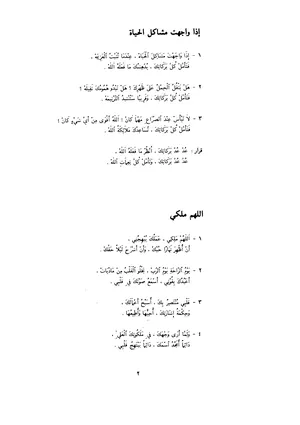 إذا واجهت مشاكل الحياة
١ - إِذَا وَاجَهْتَ مَشَاكِلَ الْحَيَاةِ ، عِنْدَمَا تَثْبُتُ الْعَزِيمَة ،
فَتَأَمَّلْ كُلَّ بَرَكَاتِكَ ، يُدْهِشُكَ مَا فَعَلَهُ اللّٰهُ .
٢ - هَلْ يَثْقُلُ الْحِمْلُ عَلَى ظَهْرِكَ ؟ هَلْ تَبْدُو هُمُومُكَ ثَقِيلَة ؟
فَتَأَمَّلْ كُلَّ بَرَكَاتِكَ ، وَقَرِيبًا سَتُنْشِدُ التَّرْنِيمَة .
٣ - لَا تَيْأَسْ عِنْدَ الصِّرَاعِ مَهْمَا كَانَ ! اللّٰهُ أَقْوَى مِنْ أَيِّ شَيْءٍ كَانَ !
فَتَأَمَّلْ كُلَّ بَرَكَاتِكَ ، تُسَاعِدُكَ مَلَائِكَةُ اللّٰهِ .
قرار : عُدَّ عُدَّ بَرَكَاتِكَ ، اُنْظُرْ مَا فَعَلَهُ اللّٰهُ .
عُدَّ عُدَّ بَرَكَاتِكَ ، وَتَأَمَّلْ كُلَّ هِبَاتِ اللّٰهِ .
اللهم ملكي
١ - اَللّٰهُمَّ مَلِكِي ، عَمَلُكَ يُبْهِجُنِي ،
أَنْ أُظْهِرَ نَهَارًا حُبَّكَ ، وَأَنْ أَشْرَحَ لَيْلًا حَقَّكَ .
٢ - يَوْمُ الرَّاحَةِ يَوْمُ الرَّبِّ ، يَخْلُو الْقَلْبُ مِنْ مَادِّيَاتٍ ،
أَعْبُدُكَ بِقُوَّتِي ، أَسْمَعُ صَوْتَكَ فِي قَلْبِي .
٣ - قَلْبِي مُنْتَصِرٌ بِكَ ، أُسَبِّحُ أَعْمَالَكَ ،
وَحِكْمَةُ إِنْسَانِيَتِكَ ، أُحِبُّهَا وَأُطِيعُهَا .
٤ - وَلَمَّا أَرَى وَجْهَكَ ، فِي مَلَكُوتِكَ الْعَلِيِّ ،
دَائِمًا أُمَجِّدُ اسْمَكَ ، دَائِمًا يَبْتَهِجُ قَلْبِي .
٢